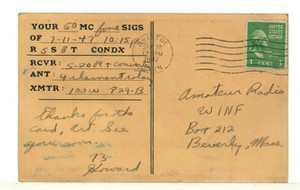 YOUR 50 MC fone SIGS
OF 7-11-47 10:15 P
R 5 S 8 T CONDX
RCVR: S-20R + Conv
ANT: 4 element
XMTR: 100W 829-B
Thanks for the
card, Art. See
you soon.
73-
Howard
1 CENT 1
Amateur Radio
W1NF
Box 212
Beverly, Mass.